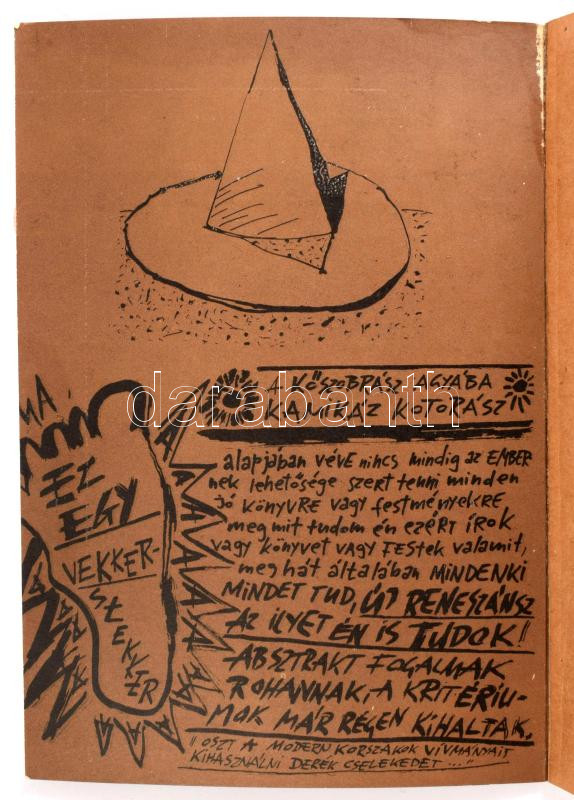 A KŐSZOBRÁSZ AGYÁBA
KAMIKÁZ KOTORÁSZ
darabanth
alapjában véve nincs mindig az EMBER
nek lehetősége szert tenni minden
jó KÖNYVRE vagy festményekre
meg mit tudom én ezért írok
vagy könyvet vagy FESTEK valamit,
meg hát általában MINDENKI
MINDET TUD, ÚJ RENESZÁNSZ
AZ ILYET ÉN IS TUDOK!!
ABSZTRAKT FOGALMAK
ROHANNAK, A KRITÉRIU-
MOK MÁR RÉGEN KIHALTAK,
"OSZT A MODERN KORSZAKOK VÍVMÁNYAIT
KIHASZNÁLNI DERÉK CSELEKEDET..."
MA
EZ
EGY
VEKKER-